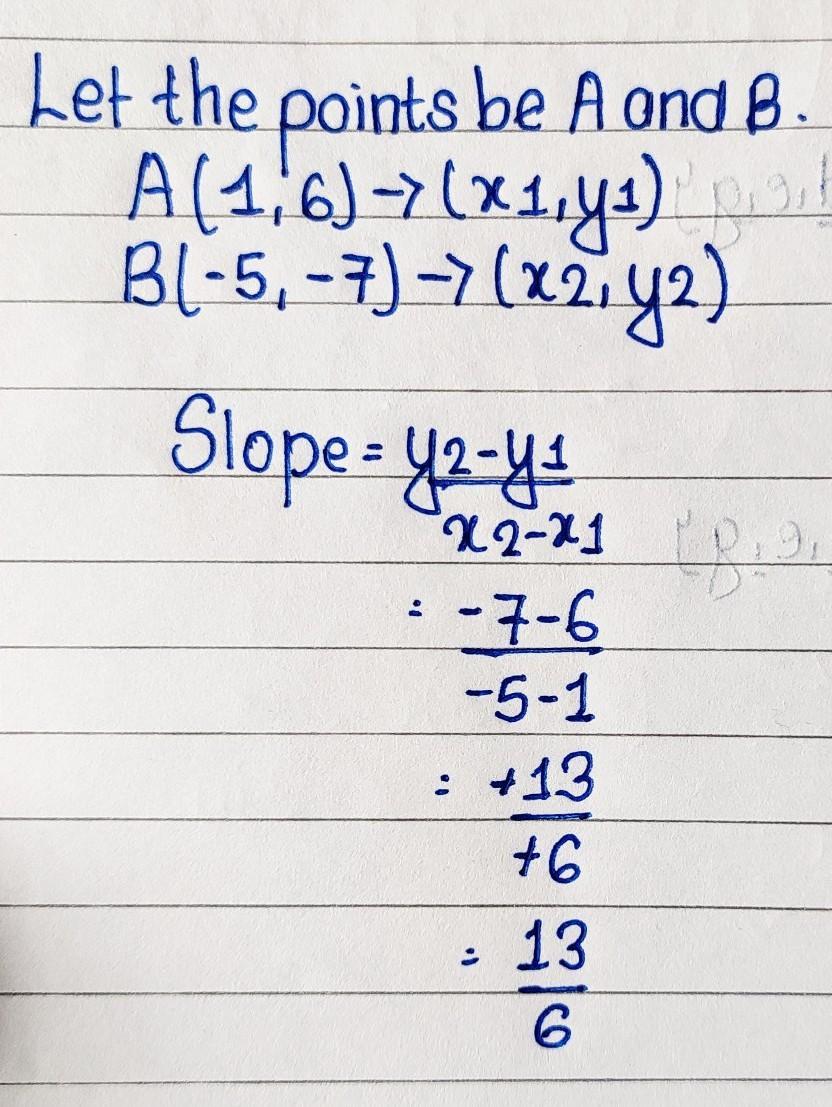 Let the points be A and B.
A(1,6)→(x1,y1)
B(-5,-7)→(x2,y2)
Slope = y2-y1
x2-x1
= -7-6
-5-1
= +13
+6
= 13
6